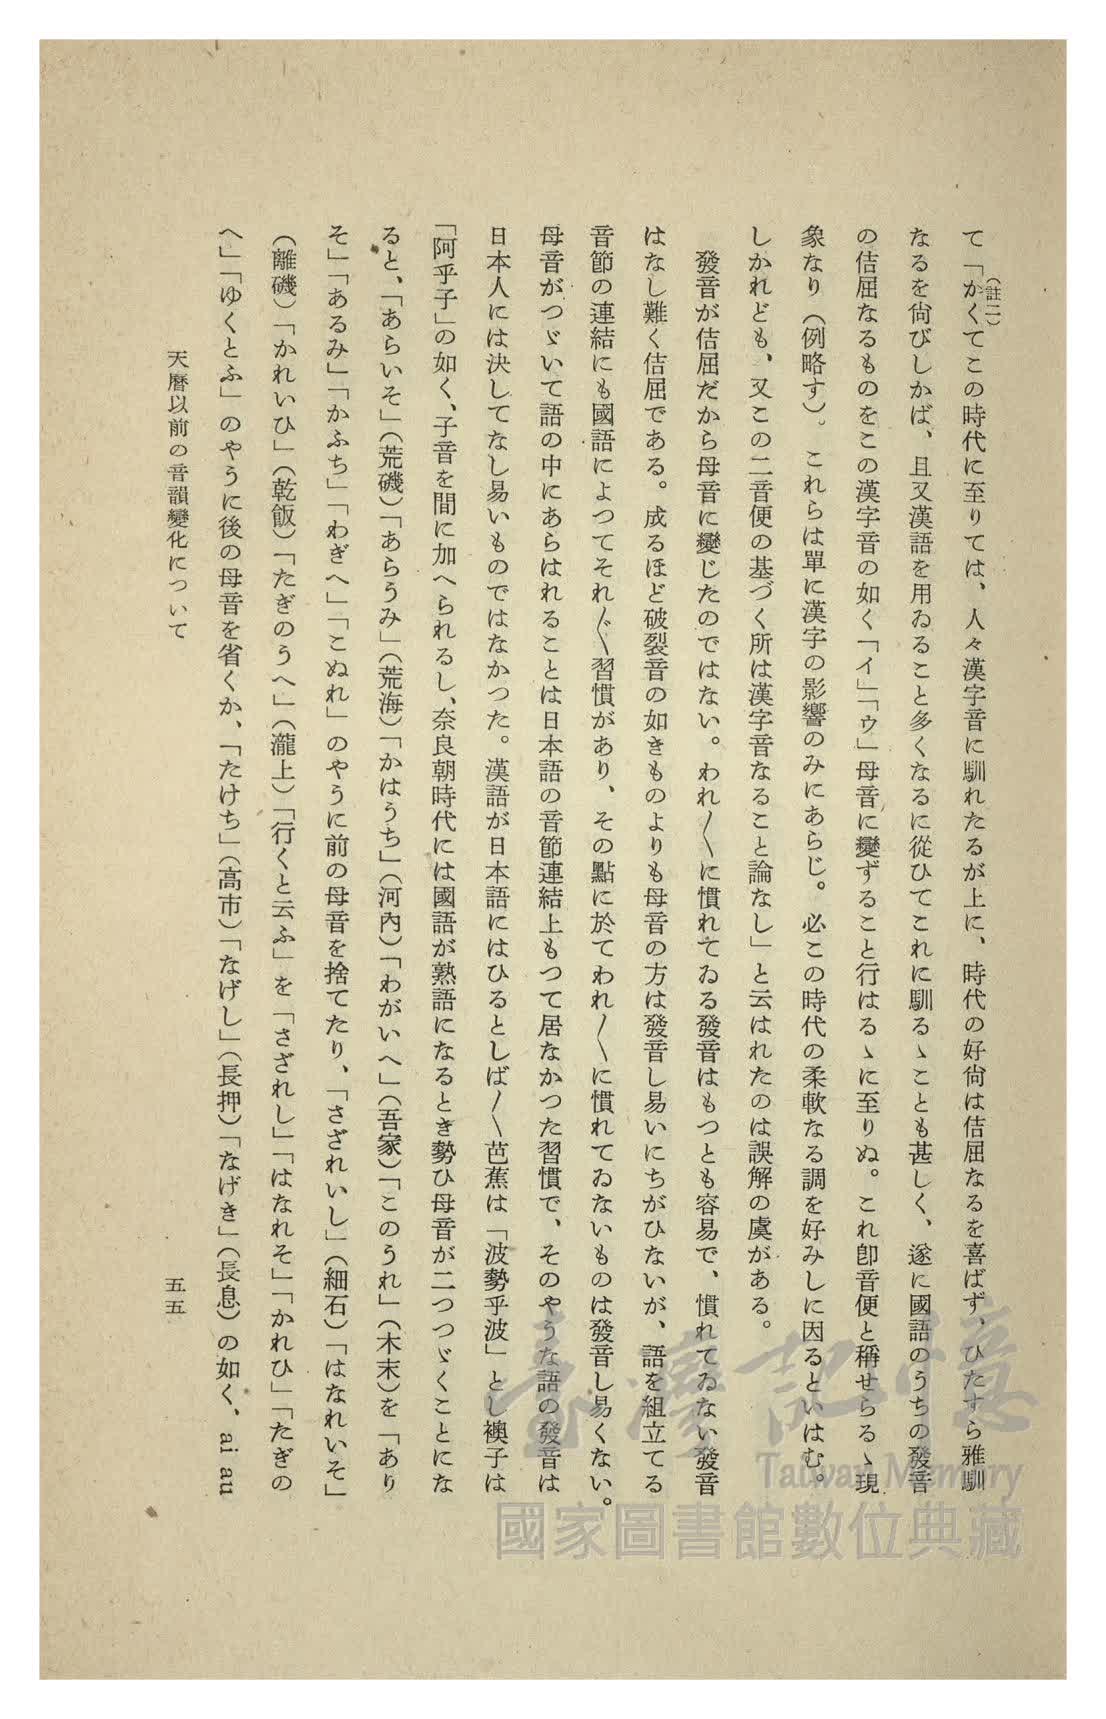 (註二)
て「かくてこの時代に至りては、人々漢字音に馴れたるが上に、時代の好尙は佶屈なるを喜ばず、ひたすら雅馴
なるを尙びしかば、且又漢語を用ゐること多くなるに從ひてこれに馴るゝことも甚しく、遂に國語のうちの發音
の佶屈なるものをこの漢字音の如く「イ」「ウ」母音に變ずること行はるゝに至りぬ。これ卽音便と稱せらるゝ現
象なり（例略す）。これらは單に漢字の影響のみにあらじ。必この時代の柔軟なる調を好みしに因るといはむ。
しかれども、又この二音便の基づく所は漢字音なること論なし」と云はれたのは誤解の虞がある。
發音が佶屈だから母音に變じたのではない。われ〳〵に慣れてゐる發音はもつとも容易で、慣れてゐない發音
はなし難く佶屈である。成るほど破裂音の如きものよりも母音の方は發音し易いにちがひないが、語を組立てる
音節の連結にも國語によつてそれ〴〵習慣があり、その點に於てわれ〳〵に慣れてゐないものは發音し易くない。
母音がつゞいて語の中にあらはれることは日本語の音節連結上もつて居なかつた習慣で、そのやうな語の發音は
日本人には決してなし易いものではなかつた。漢語が日本語にはひるとしば〳〵芭蕉は「波勢乎波」とし襖子は
「阿乎子」の如く、子音を間に加へられるし、奈良朝時代には國語が熟語になるとき勢ひ母音が二つつゞくことにな
ると、「あらいそ」（荒磯）「あらうみ」（荒海）「かはうち」（河內）「わがいへ」（吾家）「このうれ」（木末）を「あり
そ」「あるみ」「かふち」「わぎへ」「こぬれ」のやうに前の母音を捨てたり、「さざれいし」（細石）「はなれいそ」
（離磯）「かれいひ」（乾飯）「たぎのうへ」（瀧上）「行くと云ふ」を「さざれし」「はなれそ」「かれひ」「たぎの
へ」「ゆくとふ」のやうに後の母音を省くか、「たけち」（高市）「なげし」（長押）「なげき」（長息）の如く、ai au
天曆以前の音韻變化について
五五
臺灣記憶
Taiwan Memory
國家圖書館數位典藏